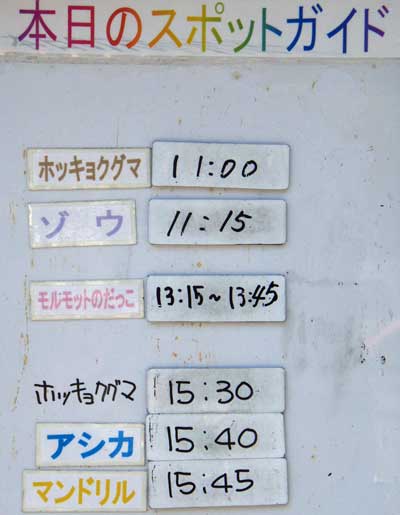 本日のスポットガイド
ホッキョクグマ 11:00
ゾウ 11:15
モルモットのだっこ 13:15~13:45
ホッキョクグマ 15:30
アシカ 15:40
マンドリル 15:45